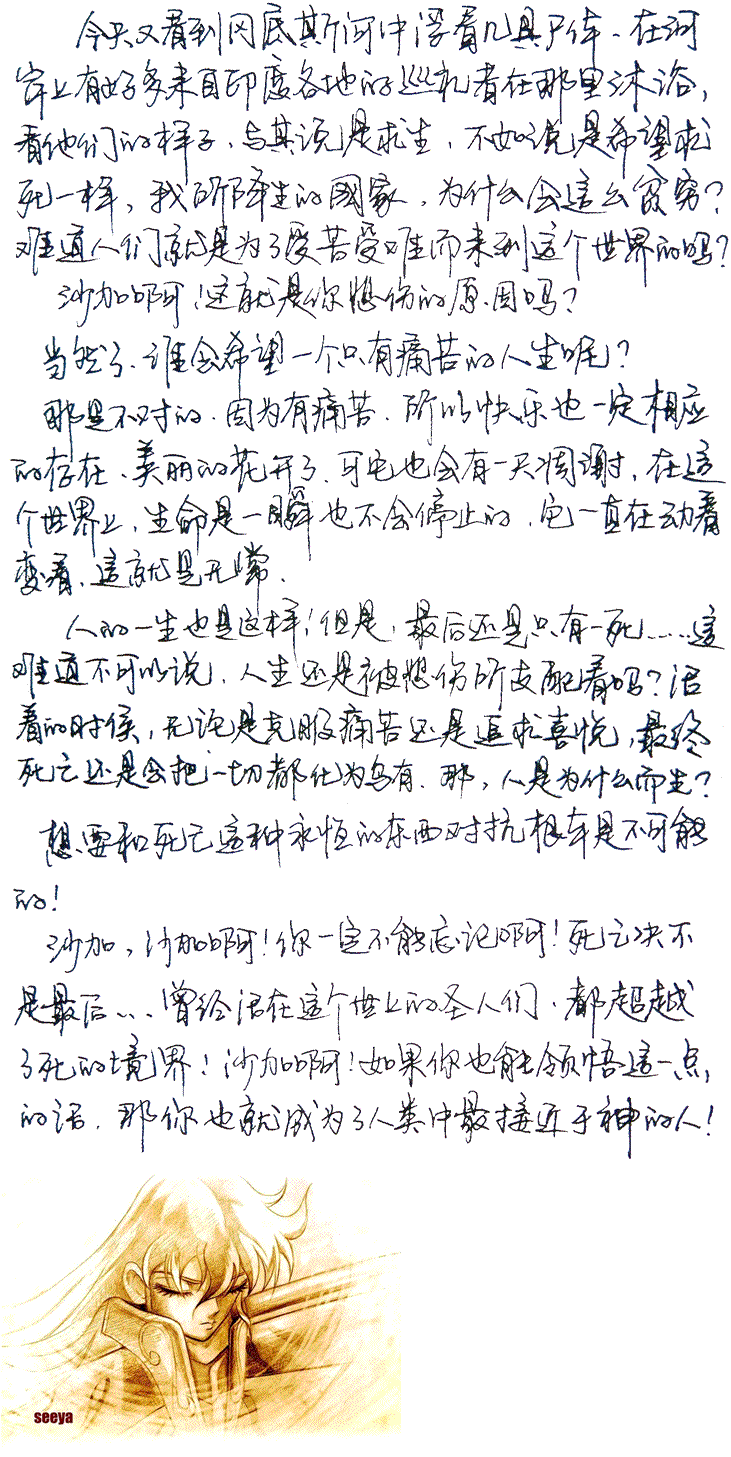 今天又看到冈底斯河中浮着几具尸体、在河
岸上有好多来自印度各地的巡礼者在那里沐浴，
看他们的样子、与其说是求生，不如说是希望求
死一样，我所降生的國家，为什么会這么貧穷？
难道人们就是为了受苦受难而来到這个世界的吗？
沙加啊！这就是你悲伤的原因吗？
当然了、谁会希望一个只有痛苦的人生呢？
那是不对的、因为有痛苦、所以快乐也一定相应
的存在、美丽的花开了、可它也会有一天凋谢，在這
个世界上，生命是一瞬也不会停止的，它一直在动着
变着，這就是无常、
人的一生也是这样！但是，最后还是只有一死……這
难道不可以说，人生还是被悲伤所支配着吗？活
着的时候，无论是克服痛苦还是追求喜悦，最终
死亡还是会把一切都化为乌有、那，人是为什么而生？
想要和死亡這种永恒的东西对抗根本是不可能
的！
沙加，沙加啊！你一定不能忘记啊！死亡决不
是最后…、曾经活在這个世上的圣人们、都超越
了死的境界！沙加啊！如果你也能领悟這一点
的话、那你也就成为了人类中最接近于神的人！
seeya